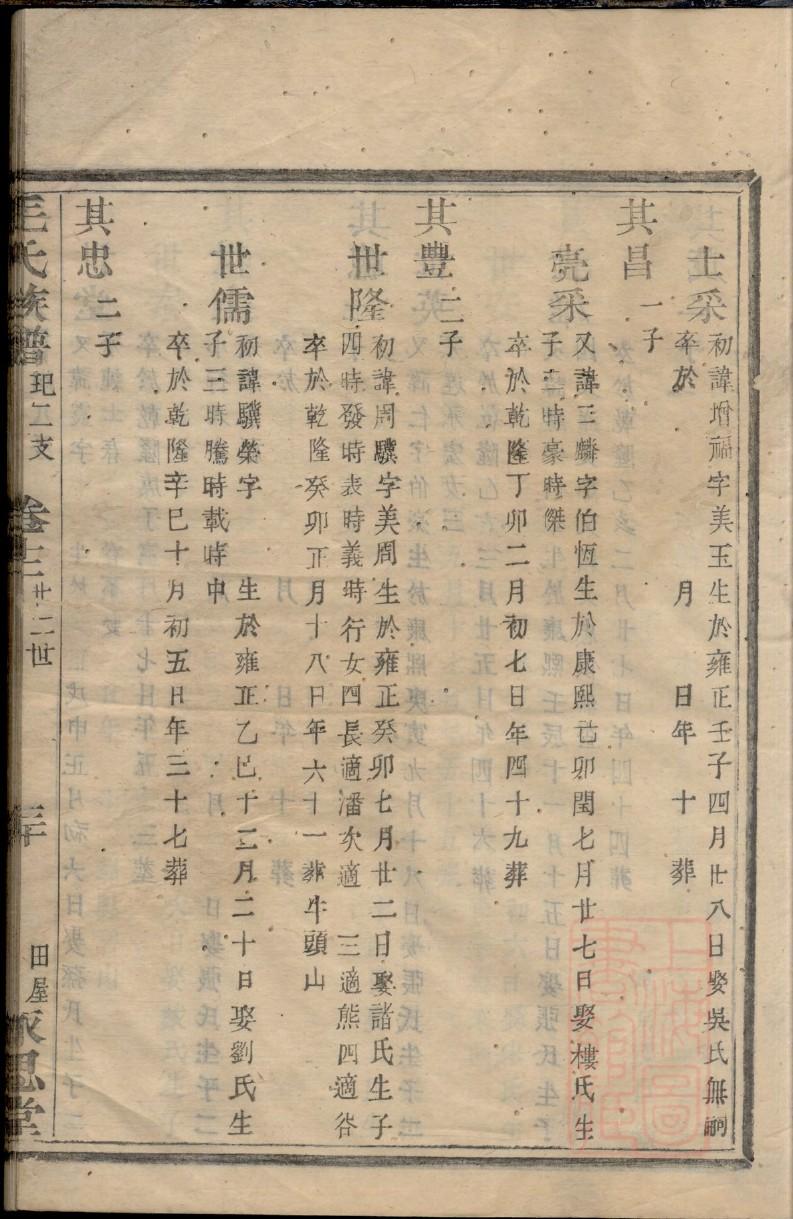 士采初諱增福字美玉生於雍正壬子四月廿八日娶吳氏無嗣
卒於　月　日年　十　葬
其昌一子
亮采又諱三麟字伯恆生於康熙己卯閏七月廿七日娶樓氏生
子二時豪時傑
卒於乾隆丁卯二月初七日年四十九葬
其豐二子
世隆初諱周驥字美周生於雍正癸卯七月廿二日娶諸氏生子
四時發時表時義時行女四長適潘次適　三適熊四適咎
卒於乾隆癸卯正月十八日年六十一葬牛頭山
世儒初諱驥榮字　生於雍正乙巳十二月二十日娶劉氏生
子三時騰時載時中
卒於乾隆辛巳十月初五日年三十七葬
其忠二子
毛氏族譜　玘二支　卷十三　廿二世　三十　田屋永思堂